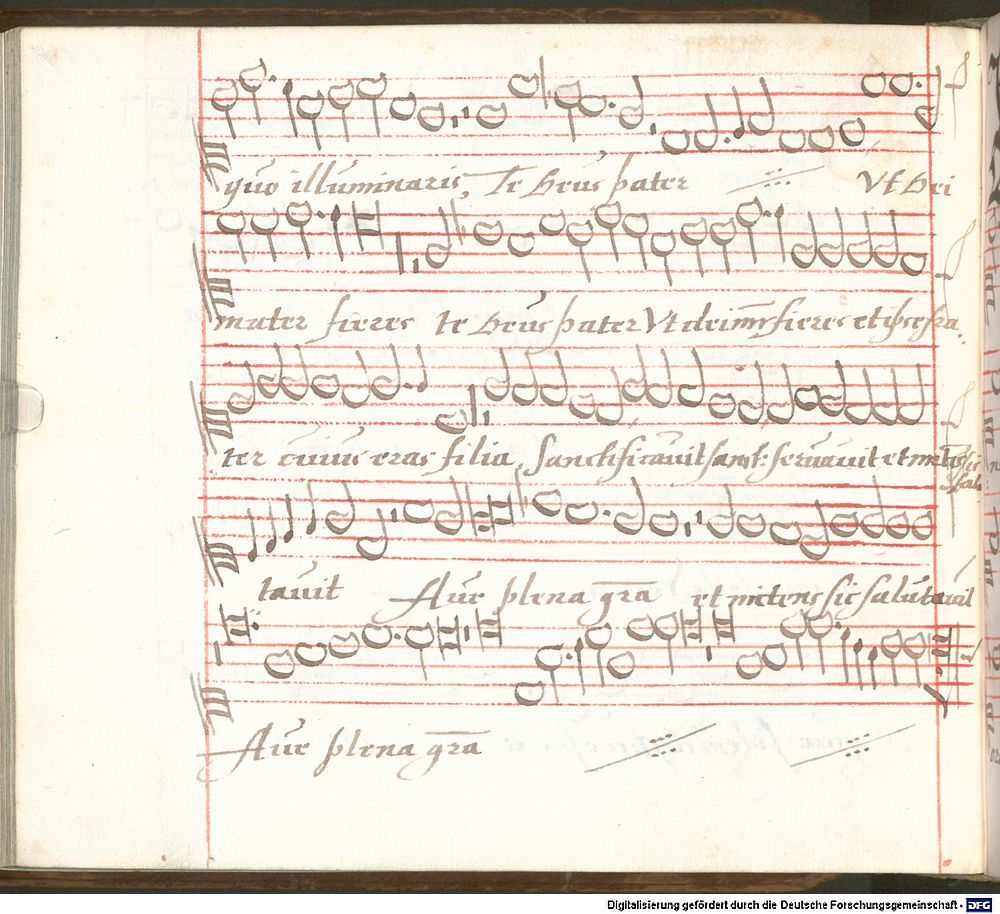 quo illuminaris, Te Deus pater Ut Dei
mater fieres te Deus pater Ut dei fieres et ipse fra
ter cuius eras filia, Sanctificavit sanct: servavit et mitens sic
tavit Ave plena gra et mitens sic salutavit
Ave plena gra
Digitalisierung gefördert durch die Deutsche Forschungsgemeinschaft - DFG